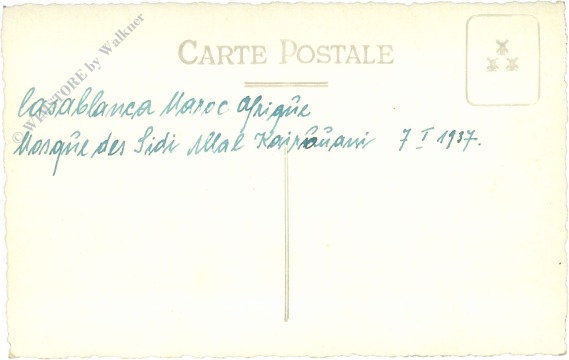 CARTE POSTALE
Casablanca Maroc Afrique
Mosque des Sidi Allal Kairouani 7 I 1937.
© WEBSTORE by Walkner